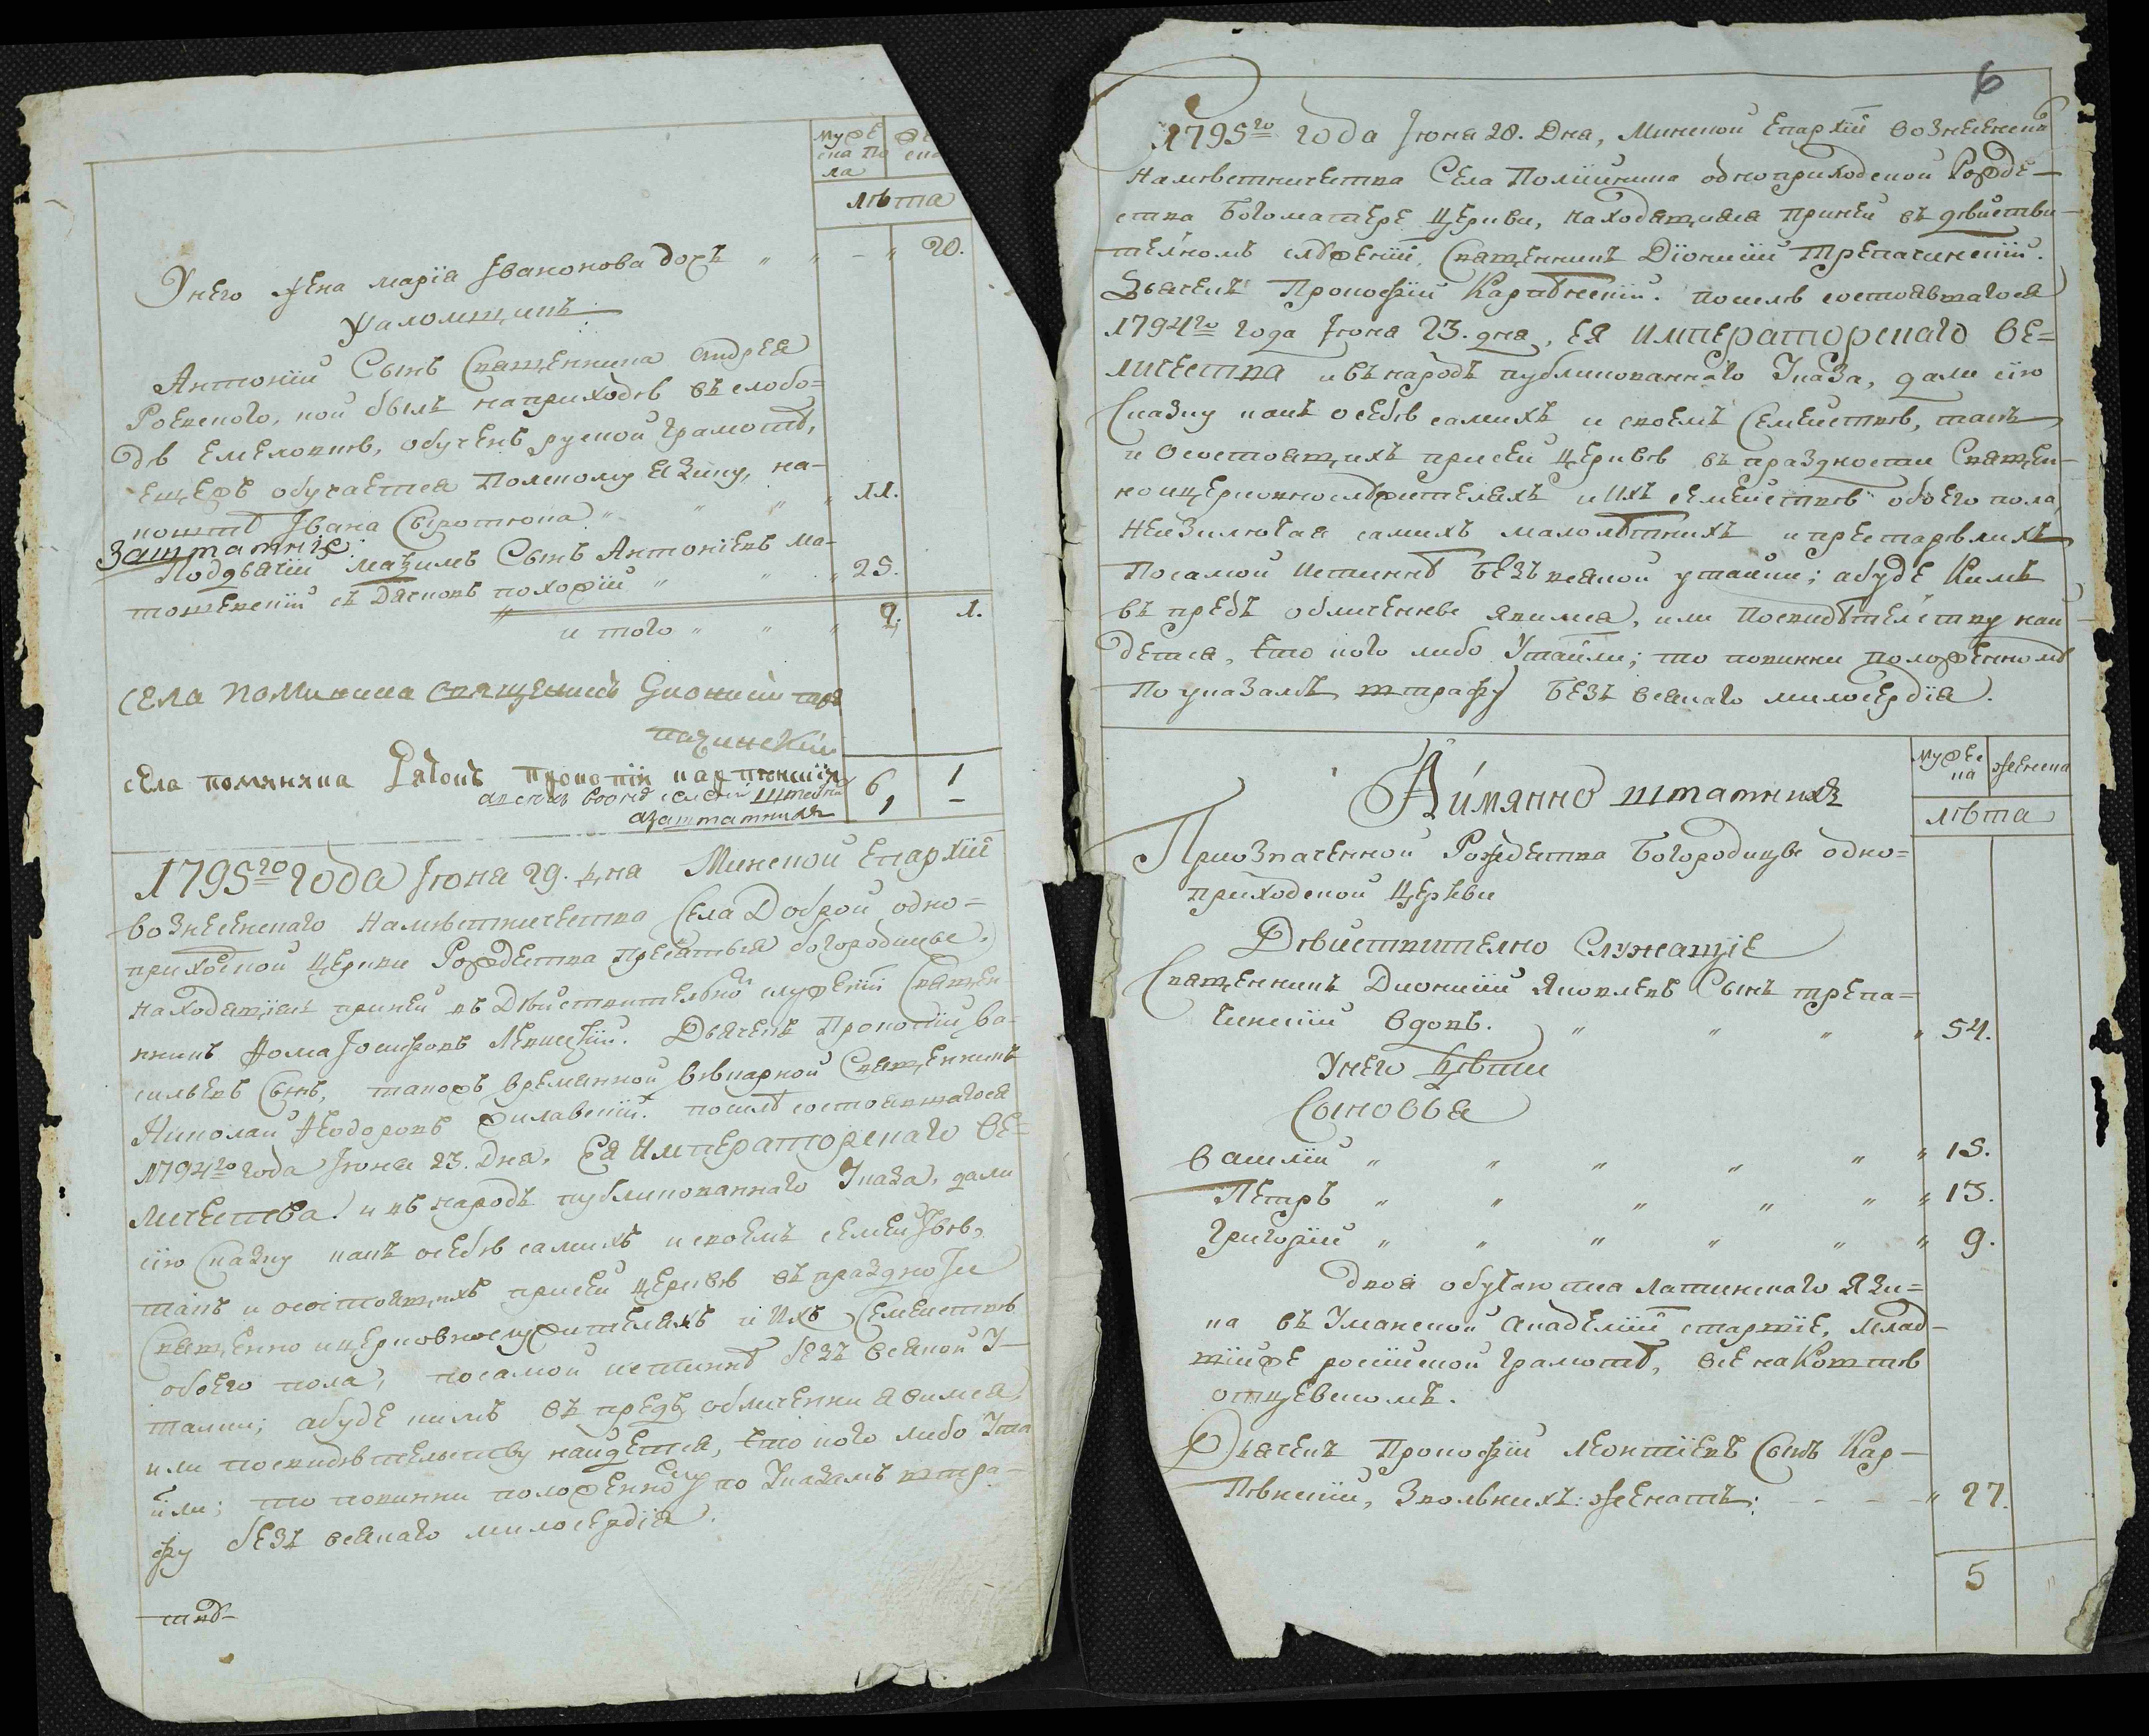 муже
ска по
ла
же
ска
лѣта
Унего жена марія Іванонова дочь „ „ - „ 20.
Ѱаломщикъ
Антоній Сынъ Священника андрея
Роевского, кой былъ наприходѣ въ слобо=
дѣ Емеловкѣ, обученъ руской грамотѣ,
ещежъ обучается полскому языку, на-
коштѣ Івана Сыротюка „ „ „ „ 11.
Заштатніе
Подячій мазимъ Сынъ Антоніевъ ма-
тошевскій съ Дяковъ похожій „ „ „ 25.
и того „ „ „ 9. 1.
села помийника священикъ Дионисій трѣ
пачинскій
села помяника Дячокъ прокопій карпювскій
6 1
азаштатнихъ 1 –
1795го года Іюня 29. дня Минской Епархіи
вознесенскаго Намѣстничества Села Доброй одно=
приходской Церкви Рождества пресвятыя богородицы,
находящіясь принеи въ Дѣйствительной служеніи Священ
никъ Ѳома Іосифовъ Левицкій. Дьячекъ Прокопій ва-
сильевъ Сынъ, такожъ временной викарной Священникъ
Николай Ѳеодоровъ Филавскій. посилѣ состоявшагося
1794го года Іюня 23. Дня, Ея Императорскаго Ве=
личества и въ народъ публикованнаго Указа, дали
сію Сказку какъ осебѣ самихъ и своемъ семействѣ,
такъ и осостоящихъ присей церквѣ въ праздности
Священно ицерковнослужителяхъ и ихъ Семействѣ
обоего пола, посамой истиннѣ безъ всякой У-
тайки; абуде кимъ въ предь обличенни явимся
или посвидѣтельству найдется, что кого либо Ута
или; то повинни положенному по Указамъ штра-
фу безъ всякаго милосердія.
6
1795го года Іюня 28. Дня, Минской Епархіи вознесенска
Намѣстничества Села Помійника одноприходской Рожде-
ства Богоматере Церкви, находящіяся принеи въ дѣйстви-
телномъ служеніи, Священникъ Діонисій Трепачинскій.
Дьячекъ Прокофій Карпѣвскій. посилѣ состоявшагося
1794го года Іюня 23. дня, Ея Императорскаго Ве=
личества ивъ народъ публикованнаго Указа, дали сію
Сказку какъ осебѣ самихъ и своемъ Семействѣ, такъ
и осостоящихъ присеи церквѣ въ праздности Священ-
ноицерковнослужителяхъ и ихъ семействѣ обоего пола,
неизключая самихъ малолѣтнихъ и престарѣлихъ
Посамой Истиннѣ безъ всякой утайки; абуде Кимъ
въ предь обличенные явимся, или посвидѣтелству най-
дется, что кого либо Утаили; то повинни положенномѣ
по указамъ штрафу безъ всякаго милосердія.
мужес
ка
женска
лѣта
Аимянно штатнихъ
Приозначенной Рождества Богородицы одно=
приходской Церькви
Дѣйствително Служащіе
Священникъ Дионисій Яковлевъ Сынъ трепа=
чинскій вдовъ. „ „ „ „ 54.
Унего дѣти
Сыновья
василій „ „ „ „ „ „ 15.
Петръ „ „ „ „ „ „ 13.
Григорій „ „ „ „ „ „ 9.
двоя обучаются латинскаго Язи=
ка въ Уманской академіи старшіе, млад-
шійже россійской грамотѣ, все на Коштѣ
отцевскомъ.
Дьячекъ Прокофій Леонтіевъ Сынъ Кар-
пѣвскій, Зволныхъ: женатъ: - - - - „ 27.
5